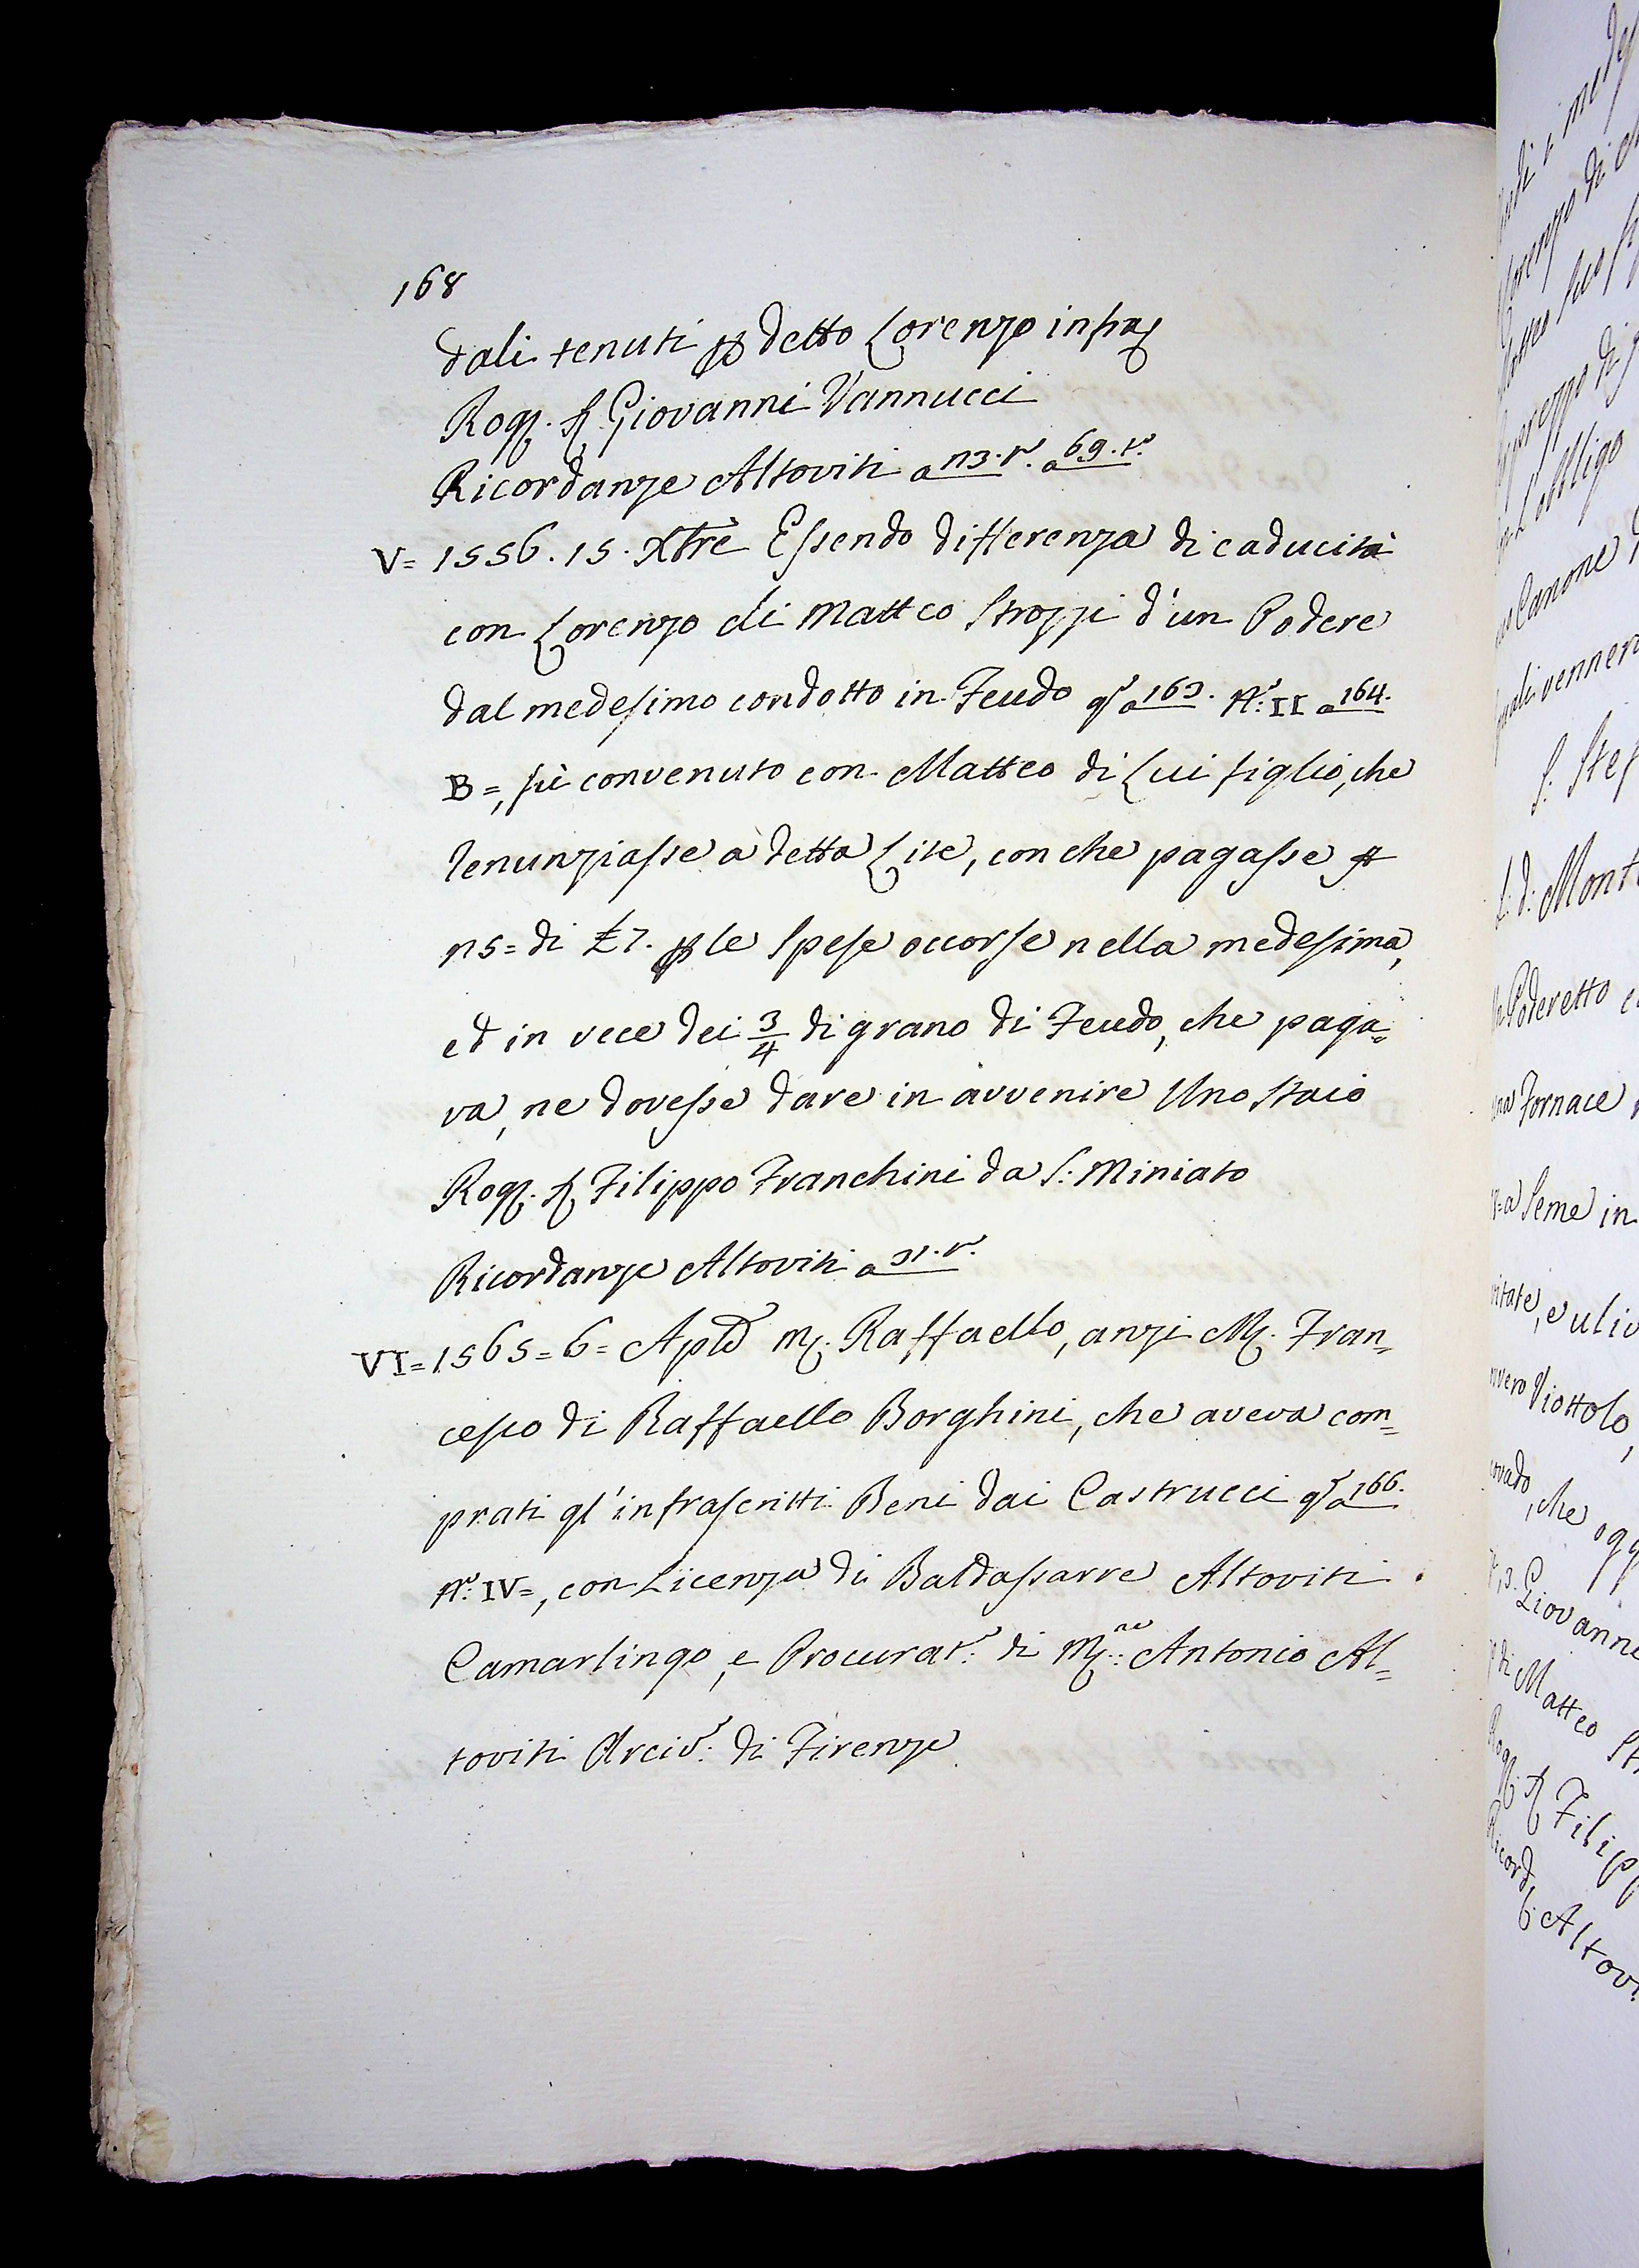 168
dali tenuti p detto Lorenzo infra
Rog. S Giovanni Vannucci
Ricordanze Altoviti a 73. r. a 69. t.
V= 1556. 15. Xbrè Essendo differenza di caducità
con Lorenzo di Matteo Strozzi d'un Podere
dal medesimo condotto in Feudo qs a 163. N: II a 164.
B=, fù convenuto con Matteo di Lui figlio, che
renunziasse a detta Lite, con che pagasse
75= di £7. p le spese occorse nella medesima,
ed in vece dei 3/4 di grano di Feudo, che paga=
va, ne dovesse dare in avvenire Uno staio
Rog. S Filippo Franchini da S: Miniato
Ricordanze Altoviti a 31. r.
VI= 1565= 6= Aple M. Raffaello, anzi M. Fran=
cesco di Raffaello Borghini, che aveva com=
prati gl'infrascritti Beni dai Castrucci qs a 166.
N: IV=, con Licenza di Baldassarre Altoviti
Camarlingo, e Procurat: di M:re Antonio Al=
toviti Arciv: di Firenze
Canone
vennero
S. Stef
Mont
Poderetto
Fornace
a Seme in
e uliv
Viottolo,
che ogg
Giovanni
di Matteo St
Rog. S Filipp
Ricord. Altov